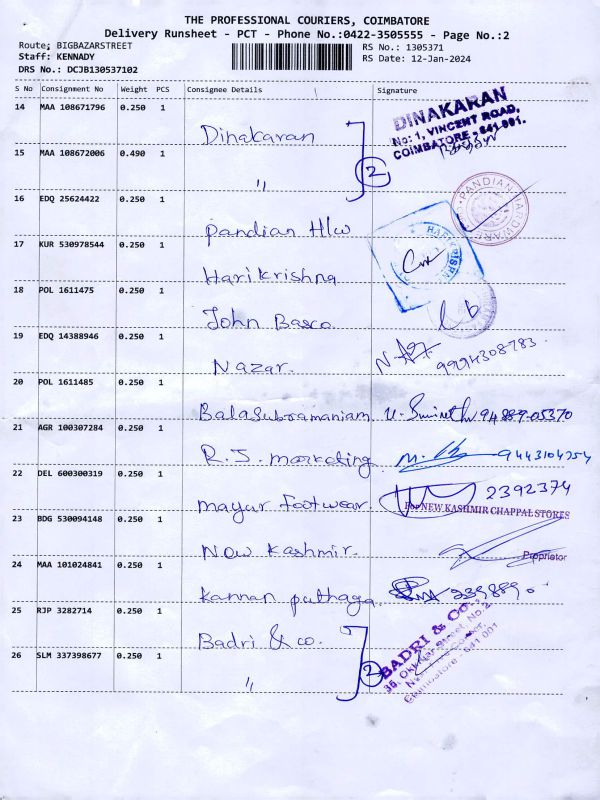 THE PROFESSIONAL COURIERS, COIMBATORE
Delivery Runsheet - PCT - Phone No.:0422-3505555 - Page No.:2
Route: BIGBAZARSTREET
RS No.: 1305371
Staff: KENNADY
RS Date: 12-Jan-2024
DRS No.: DCJB130537102
S No Consignment No Weight PCS Consignee Details Signature
14 MAA 108671796 0.250 1 Dinakaran
DINAKARAN
No: 1, VINCENT ROAD,
COIMBATORE - 641 001.
15 MAA 108672006 0.490 1 " 2
16 EDQ 25624422 0.250 1 Pandian H/w PANDIAN HARDWARE
17 KUR 530978544 0.250 1 Harikrishna
18 POL 1611475 0.250 1 John Basco
19 EDQ 14388946 0.250 1 Nazar. 9994308783.
20 POL 1611485 0.250 1 Balasubramaniam 94889-05370
21 AGR 100307284 0.250 1 R.J. marketing 9443104254
22 DEL 600300319 0.250 1 mayur footwear 2392374
For NEW KASHMIR CHAPPAL STORES
23 BDG 530094148 0.250 1 New Kashmir.
Proprietor
24 MAA 101024841 0.250 1 Kannan puthaga
25 RJP 3282714 0.250 1 Badri & co.
BADRI & Co.,
Coimbatore - 641 001
26 SLM 337398677 0.250 1 " 2